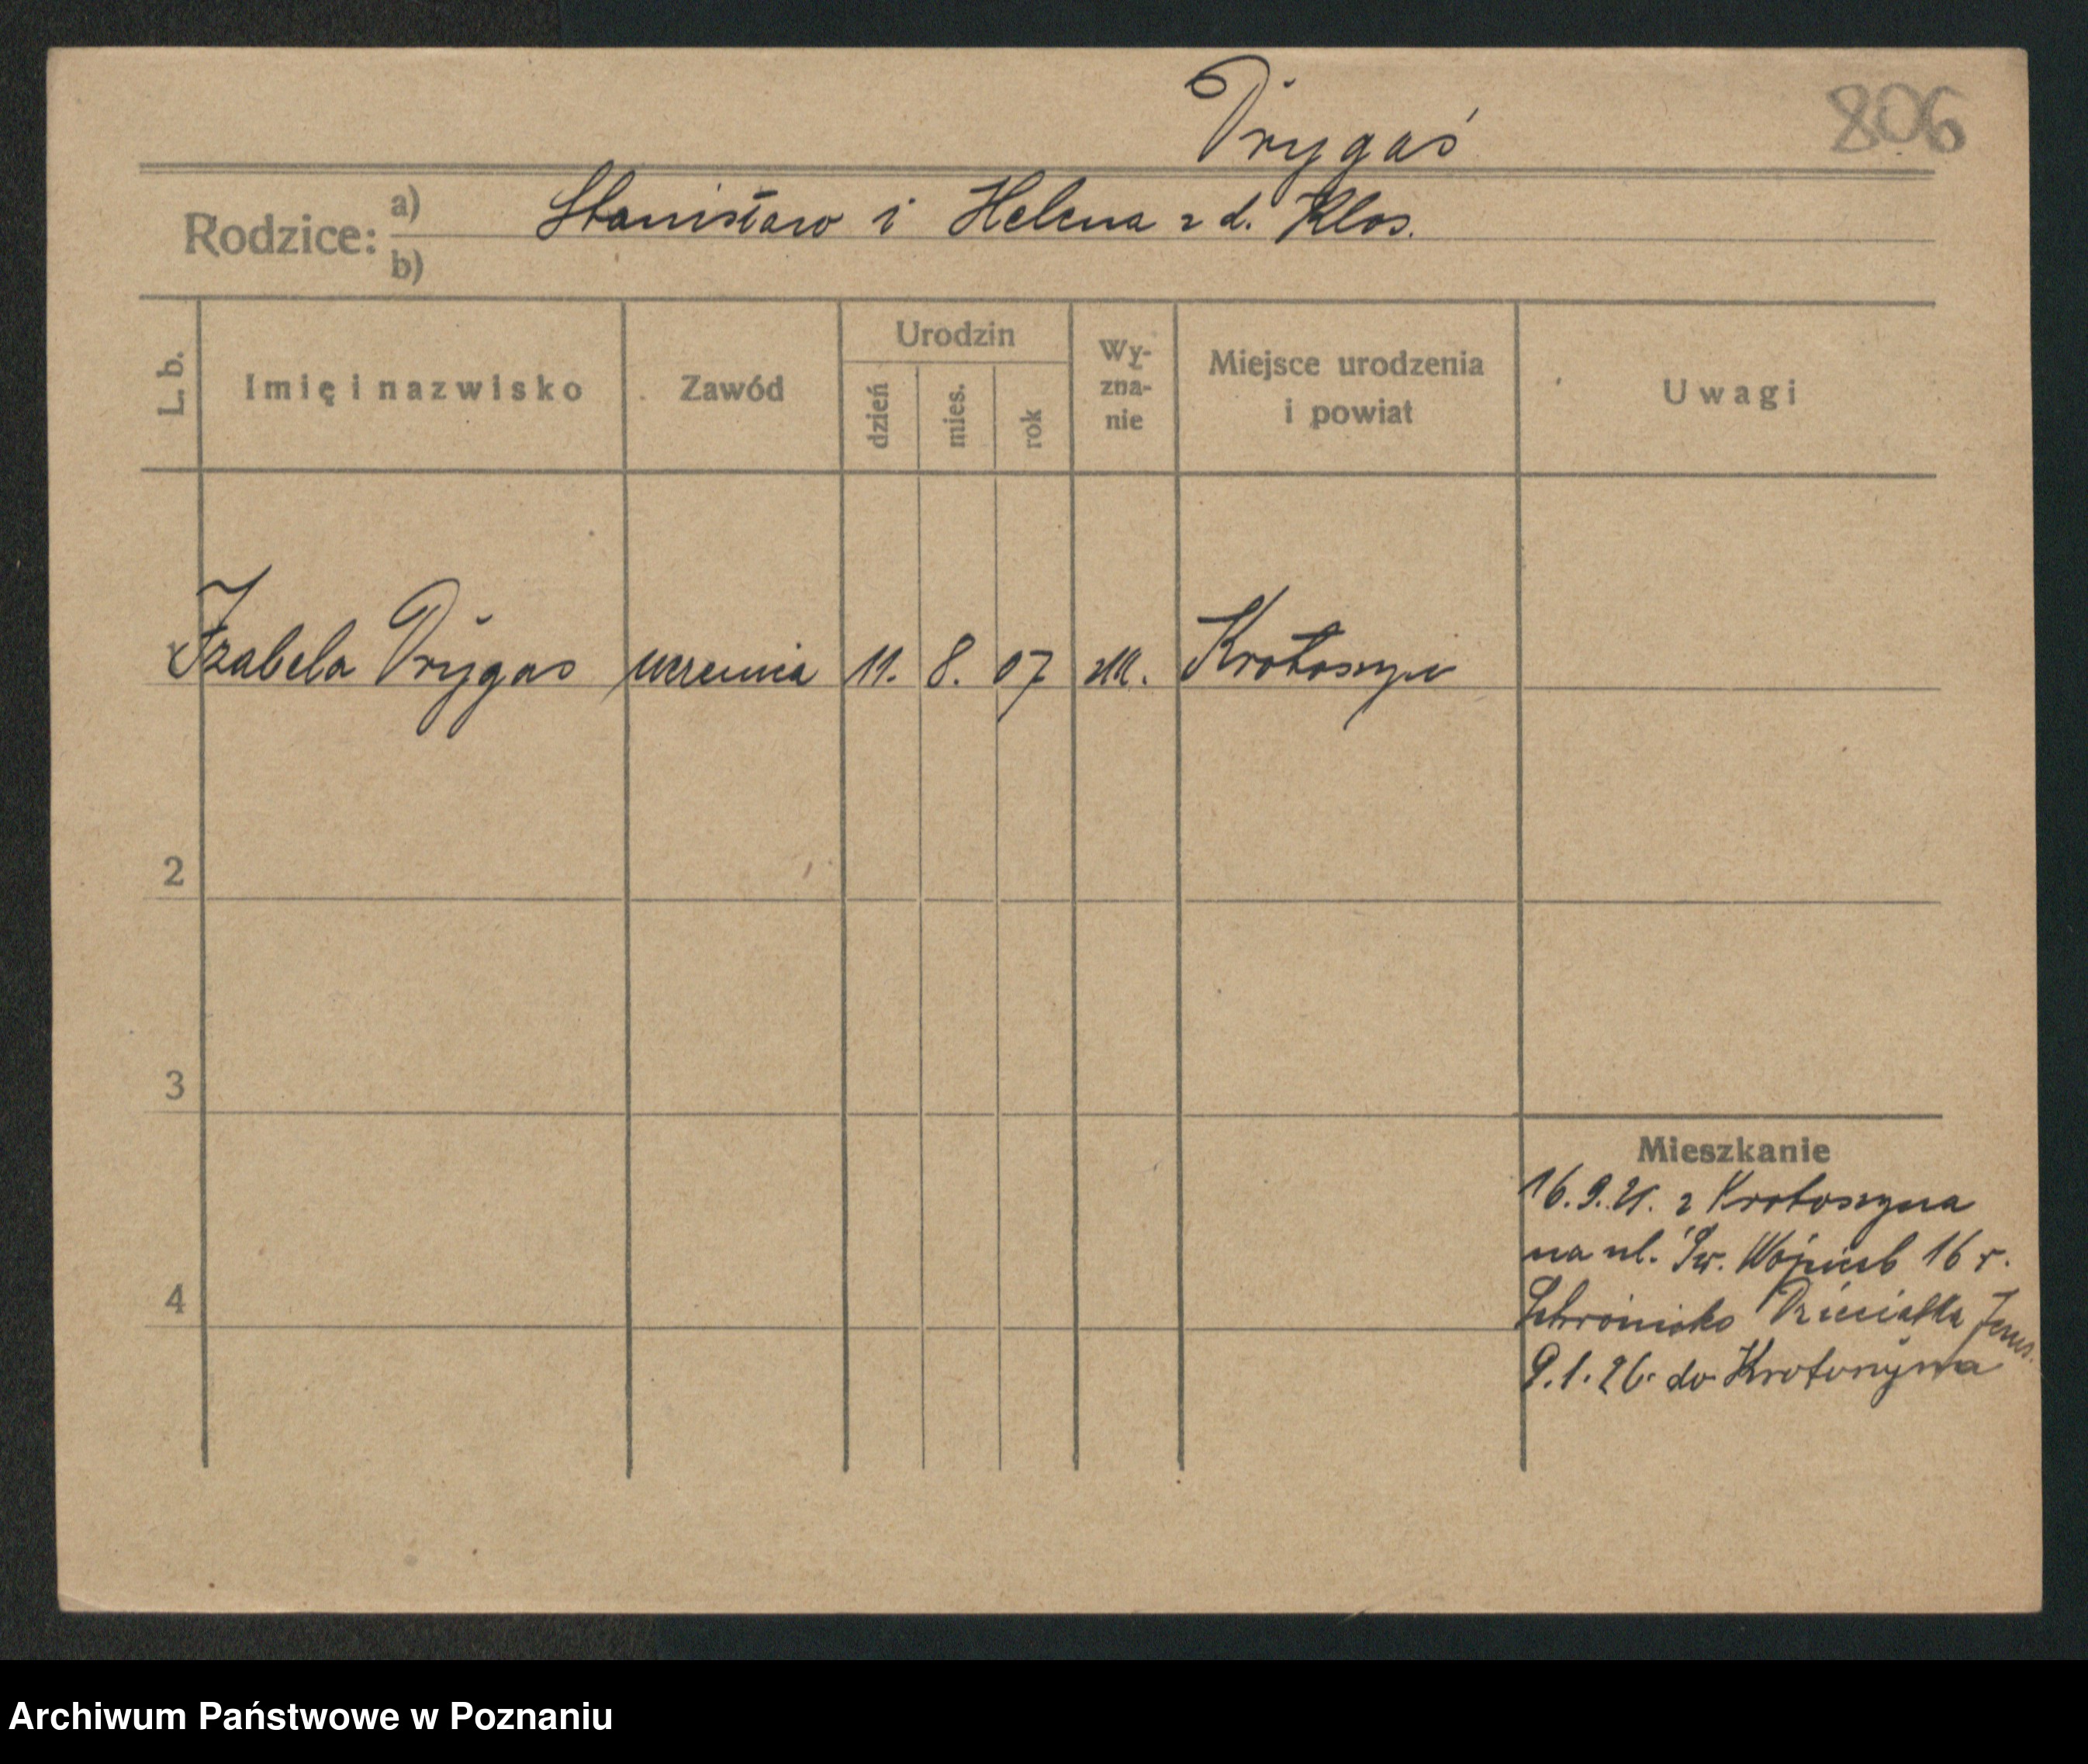 Drygaś
806
Rodzice: a) b) Stanisław i Helena z d. Klos.
L. b. Imię i nazwisko Zawód Urodzin dzień mies. rok Wy-zna-nie Miejsce urodzenia i powiat Uwagi
Izabela Drygas uczennica 11. 8. 07 Krotoszyn
2
3
Mieszkanie
16.9.21. z Krotoszyna
na ul. Św. Wojciech 16 r.
4
Schronisko Dzieciątka Jezus.
9.1.26. do Krotoszyna
Archiwum Państwowe w Poznaniu